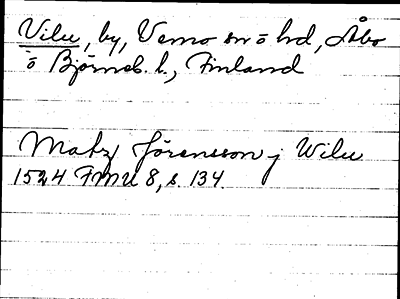 Vilu, by, Vemo sn o hd, Åbo
o Björneb. l., Finland
Matz Jörensson j Wilu
1524 FMU 8, s. 134.